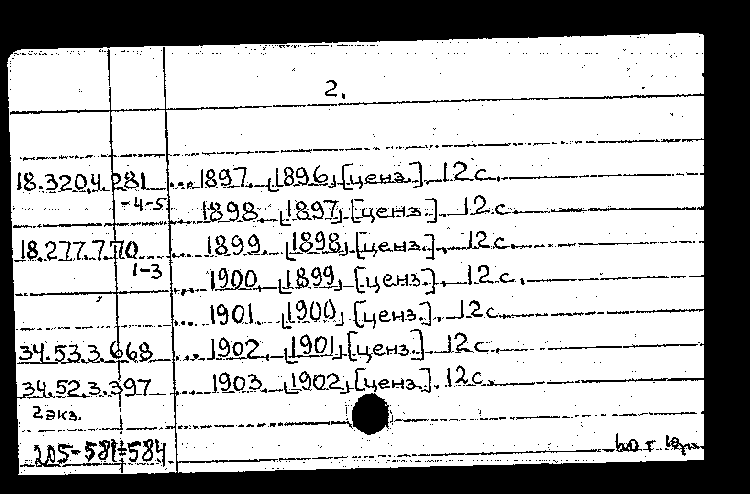 2.
18.320.4.281 ...1897. [1896] [ценз.]. 12 с.
1-4-5 1898. [1897] [ценз.]. 12 с.
18.277.7.70 ... 1899. [1898] [ценз.]. 12 с.
1-3 ... 1900. [1899] [ценз.]. 12 с.
... 1901. [1900] [ценз.]. 12 с.
34.53.3.668 ... 1902. [1901] [ценз.]. 12 с.
34.52.3.397 ... 1903. [1902] [ценз.]. 12 с.
2 экз.